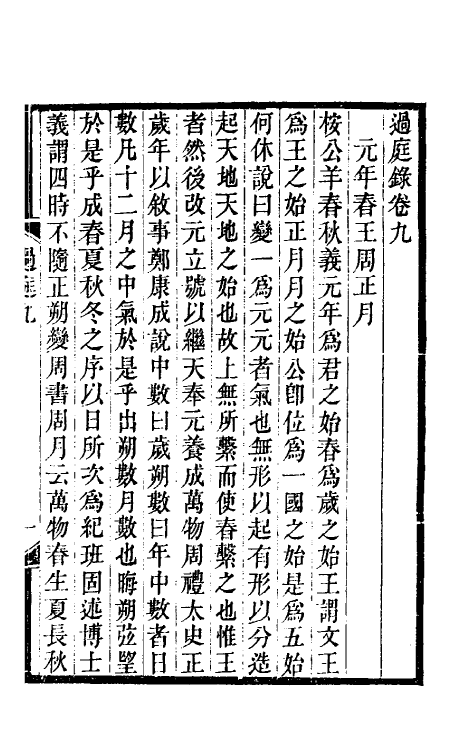 過庭錄卷九
元年春王周正月
桉公羊春秋義元年爲君之始春爲歲之始王謂文王
爲王之始正月月之始公卽位爲一國之始是爲五始
何休說曰變一爲元元者氣也無形以起有形以分造
起天地天地之始也故上無所繫而使春繫之也惟王
者然後改元立號以繼天奉元養成萬物周禮太史正
歲年以敘事鄭康成說中數曰歲朔數曰年中數者日
數凡十二月之中氣於是乎出朔數月數也晦朔弦望
於是乎成春夏秋冬之序以日所次爲紀班固述博士
義謂四時不隨正朔變周書周月云萬物春生夏長秋
過庭九
一